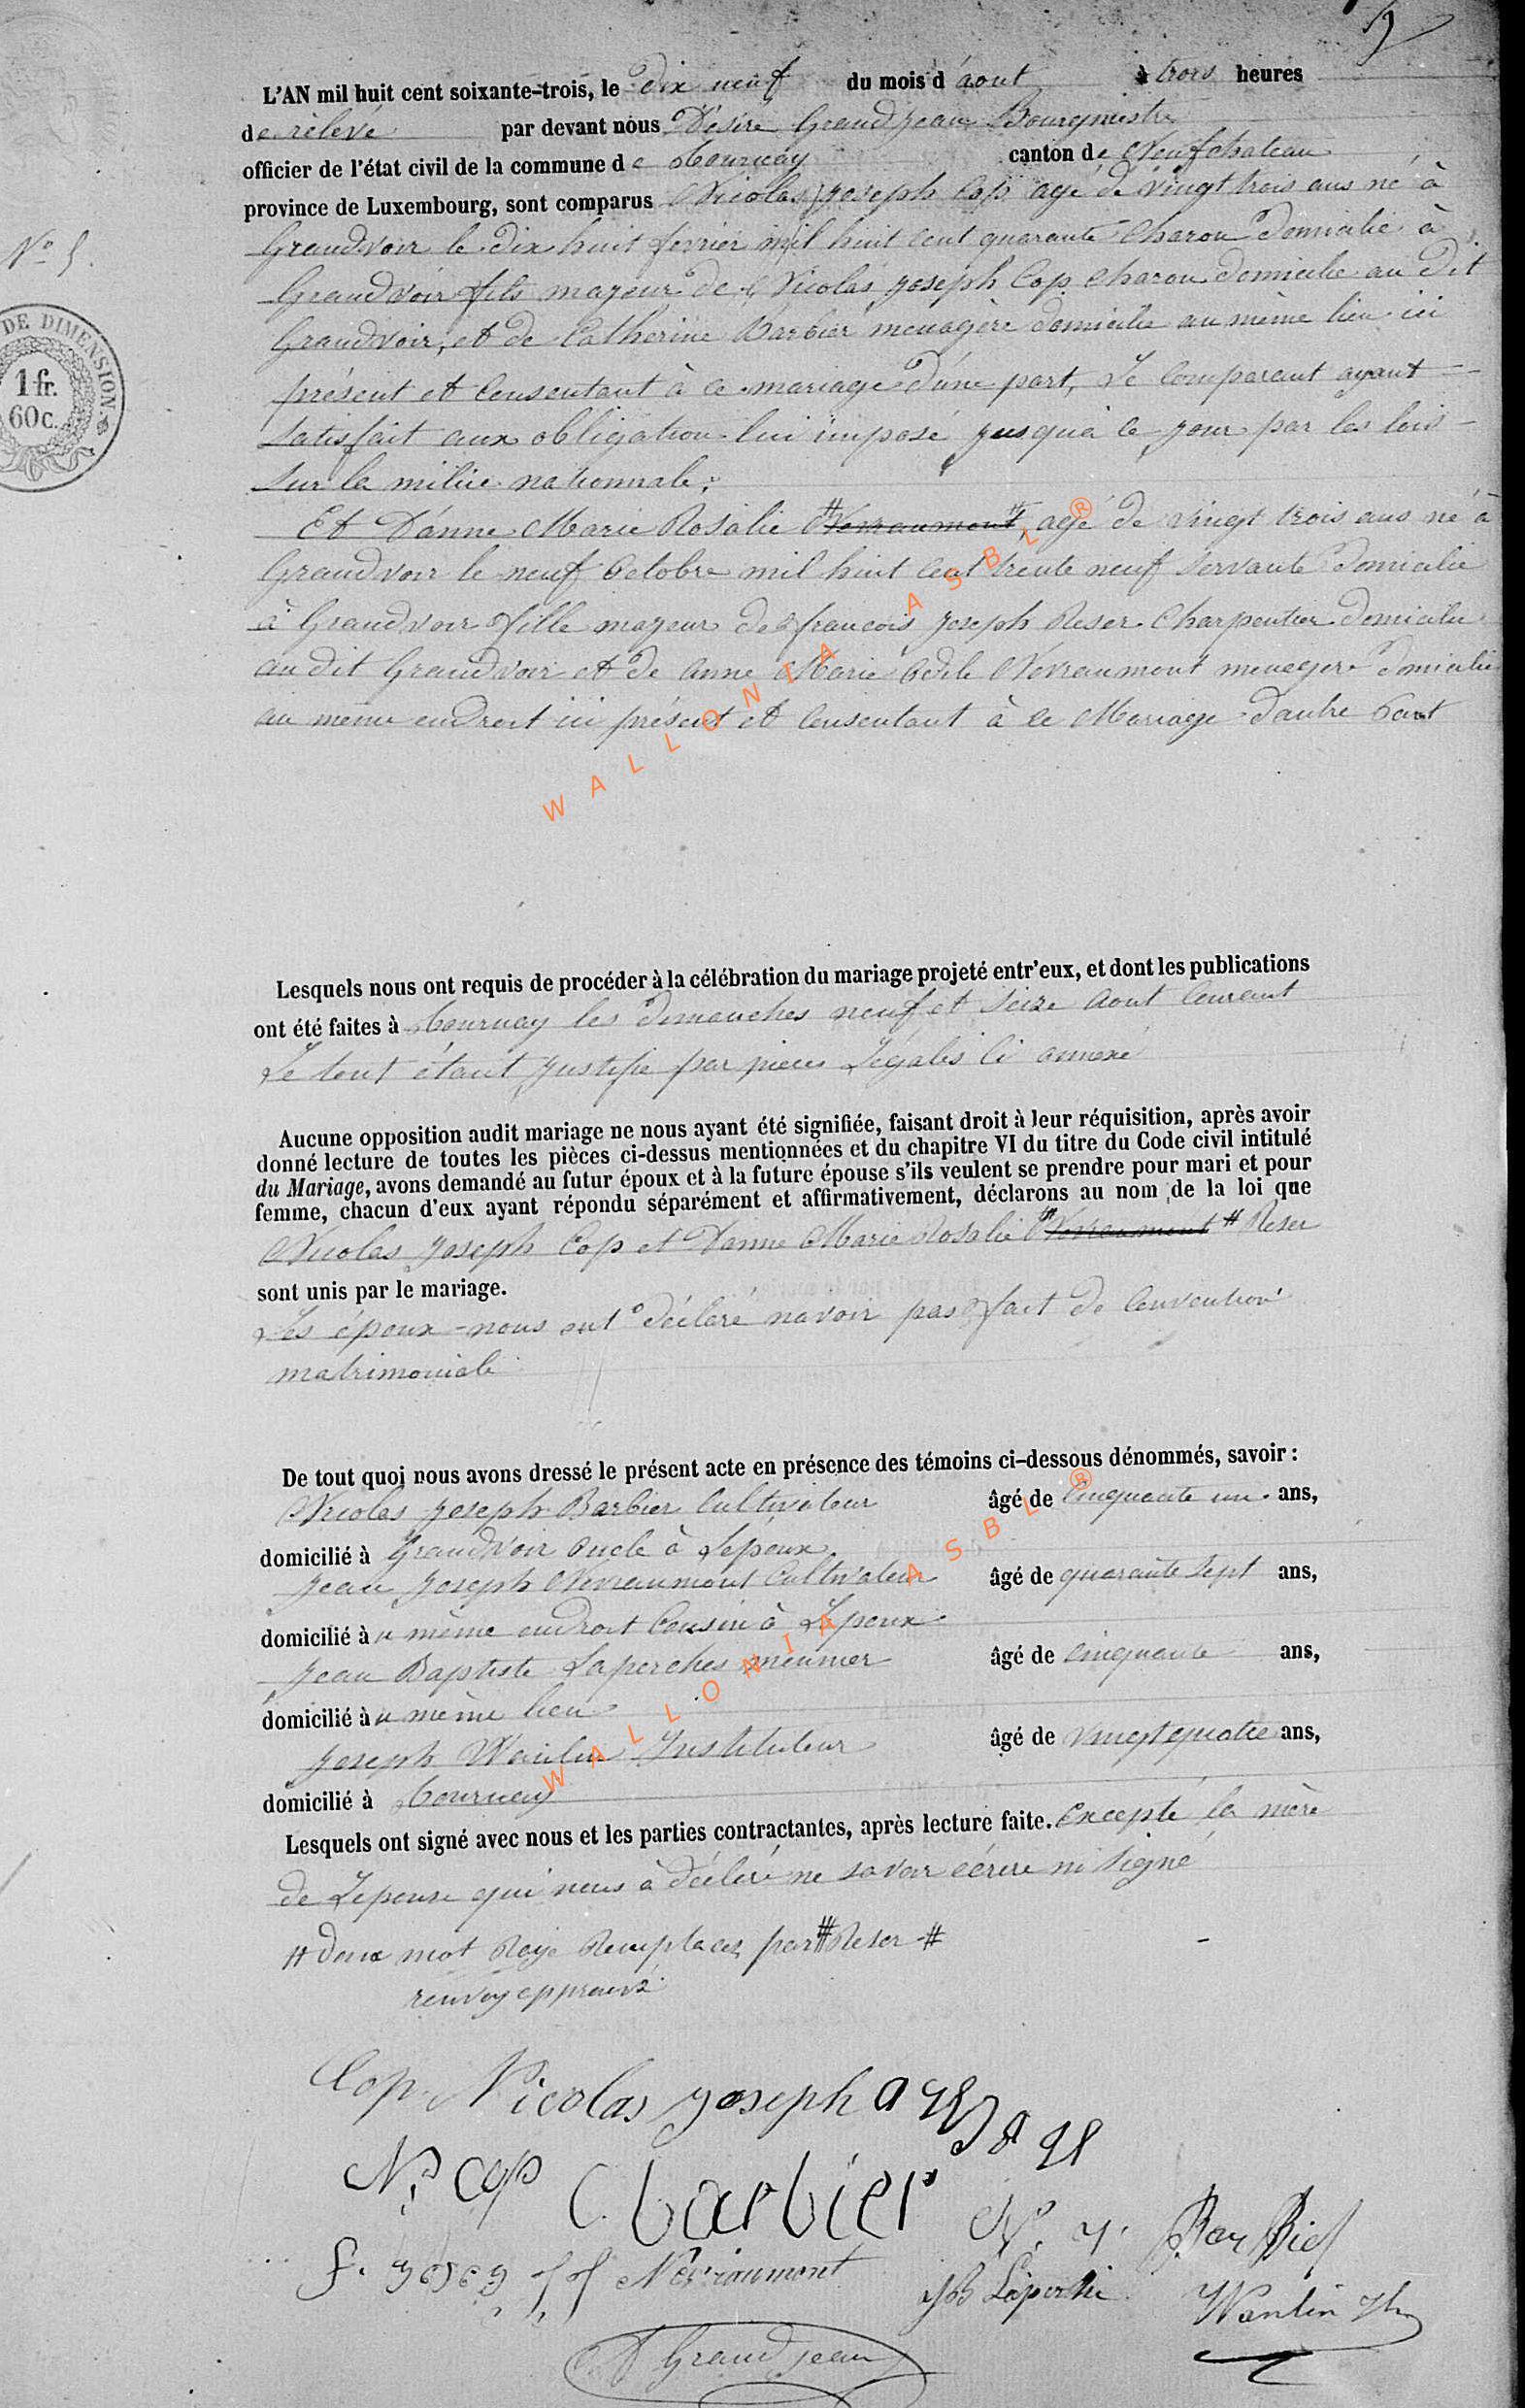 L'AN mil huit cent soixante-trois, le dix neuf du mois d'aout à trois heures
de rèlevé par devant nous Désiré Grandjean Bourgmestre
officier de l'état civil de la commune de Tournay canton de Neufchateau
province de Luxembourg, sont comparus Nicolas Joseph Cop agé de vingt trois ans né à
Grandvoir le dix huit fevrier mil huit cent quarante Charon Domicilié à
N° 5.
Grandvoir fils majeur de Nicolas Joseph Cop Charon domicilié au dit
Grandvoir, et de Catherine Barbier menagère domicilié au même lieu ici
DE DIMENSION.
1 fr.
60 c.
présent et Consentant à ce mariage d'une part, Le Comparant ayant
Satisfait aux obligation lui imposé jusqua ce jour par les lois
Sur la milice nationnale;
Et D'anne Marie Rosalie # Nevraumont #, agé de vingt trois ans né à
Grandvoir le neuf Octobre mil huit Cent trente neuf Servante Domicilié
à Grandvoir fille majeur de francois Joseph Reser Charpentier domicilié
au dit Grandvoir et de Anne Marie Odile Nevraumont menagere domicilié
au même endroit ici présent et Consentant à ce Mariage d'autre Part
WALLONIA ASBL ®
Lesquels nous ont requis de procéder à la célébration du mariage projeté entr'eux, et dont les publications
ont été faites à Tournay les dimanches neuf et Seize Aout Courant
Le tout étant justifié par pieces Légales Ci annexé
Aucune opposition audit mariage ne nous ayant été signifiée, faisant droit à leur réquisition, après avoir
donné lecture de toutes les pièces ci-dessus mentionnées et du chapitre VI du titre du Code civil intitulé
du Mariage, avons demandé au futur époux et à la future épouse s'ils veulent se prendre pour mari et pour
femme, chacun d'eux ayant répondu séparément et affirmativement, déclarons au nom de la loi que
Nicolas Joseph Cop et D'anne Marie Rosalie # Nevraumont # Reser
sont unis par le mariage.
Les époux nous ont déclaré navoir pas fait de Convention
matrimoniale
De tout quoi nous avons dressé le présent acte en présence des témoins ci-dessous dénommés, savoir :
Nicolas Joseph Barbier Cultivateur âgé de Cinquante un ans,
domicilié à Grandvoir oncle à Lepoux
Jean Joseph Nevraumont Cultivateur âgé de quarante Sept ans,
domicilié àu même endroit Cousin à Lepoux
Jean Baptiste Laperches meunier âgé de Cinquante ans,
domicilié àu même lieu
Joseph Wanlin Instituteur âgé de Vingt quatre ans,
domicilié à Tournay
WALLONIA ASBL ®
Lesquels ont signé avec nous et les parties contractantes, après lecture faite. Excepté la mère
de Lepouse qui nous à déclaré ne savoir écrire ni Signé
# deux mot Rayé Remplacez par # Reser #
renvoy approuvé
Cop Nicolas joseph
N. Cop C barbier N. J. Barbier
Nevraumont JB Laperche Wanlin Jh
D Grandjean